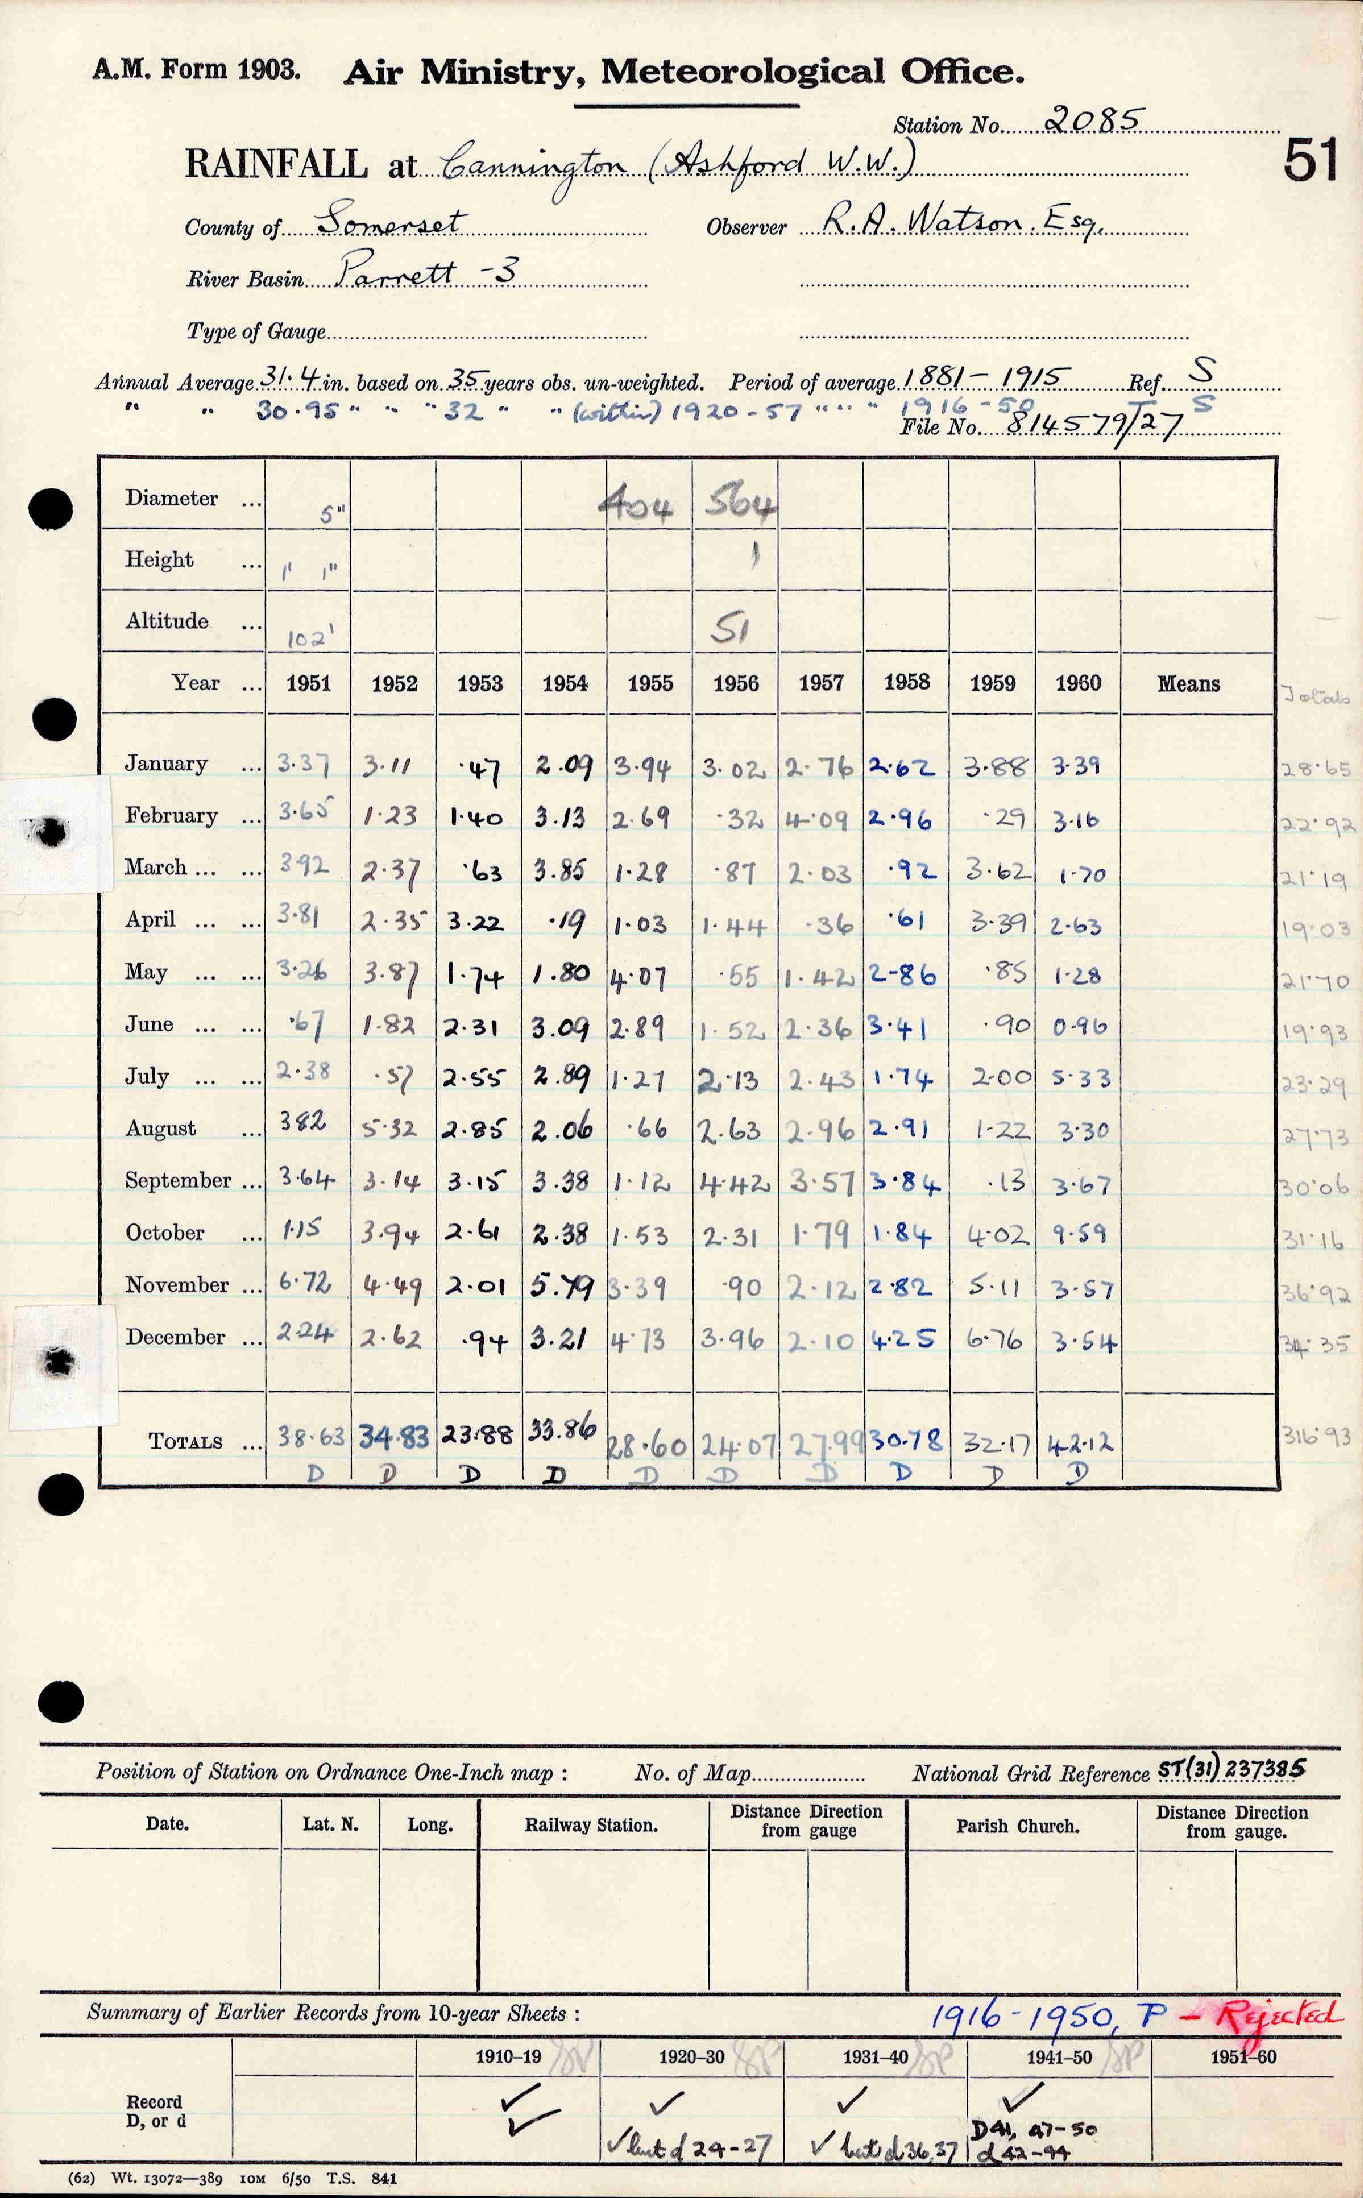 A.M. Form 1903. Air Ministry, Meteorological Office.
Station No. 2085
51
RAINFALL at Cannington (Ashford W.W.)
County of Somerset Observer R.A. Watson. Esq.
River Basin Parrett -3
Type of Gauge
Annual Average 31.4 in. based on 35 years obs. un-weighted. Period of average 1881-1915 Ref. S
" " 30.95 " " " 32 " " (within) 1920-57 " " " 1916-50 S
File No. 814579/T27
Diameter ... 5" 404 564
Height ... 1' 1" 1
Altitude ... 102' 51
Year ... 1951 1952 1953 1954 1955 1956 1957 1958 1959 1960 Means Totals
January ... 3.37 3.11 .47 2.09 3.94 3.02 2.76 2.62 3.88 3.39 28.65
February ... 3.65 1.23 1.40 3.13 2.69 .32 4.09 2.96 .29 3.16 22.92
March ... ... 3 92 2.37 .63 3.85 1.28 .87 2.03 .92 3.62 1.70 21.19
April ... ... 3.81 2.35 3.22 .19 1.03 1.44 .36 .61 3.39 2.63 19.03
May ... ... 3.26 3.87 1.74 1.80 4.07 .55 1.42 2-86 .85 1.28 21.70
June ... ... .67 1.82 2.31 3.09 2.89 1.52 2.36 3.41 .90 0.96 19.93
July ... ... 2.38 .57 2.55 2.89 1.27 2.13 2.43 1.74 2.00 5.33 23.29
August ... 3 82 5.32 2.85 2.06 .66 2.63 2.96 2.91 1.22 3.30 27.73
September ... 3.64 3.14 3.15 3.38 1.12 4.42 3.57 3.84 .13 3.67 30.06
October ... 1.15 3.94 2.61 2.38 1.53 2.31 1.79 1.84 4.02 9.59 31.16
November ... 6.72 4.49 2.01 5.79 3.39 .90 2.12 2.82 5.11 3.57 36.92
December ... 2.24 2.62 .94 3.21 4.73 3.96 2.10 4.25 6.76 3.54 34.35
TOTALS ... 38.63 34.83 23.88 33.86 28.60 24.07 27.99 30.78 32.17 42.12 316.93
D D D D D D D D D D
Position of Station on Ordnance One-Inch map : No. of Map National Grid Reference ST(31)237385
Date. Lat. N. Long. Railway Station. Distance Direction from gauge Parish Church. Distance Direction from gauge.
Summary of Earlier Records from 10-year Sheets : 1916-1950, P - Rejected
1910–19 1920–30 1931–40 1941–50 1951–60
Record
D, or d
✓ ✓ ✓ ✓
✓ ✓ but d 24-27 ✓ but d 36,37 D41, 47-50
d 42-44
(62) Wt. 13072—389 10M 6/50 T.S. 841